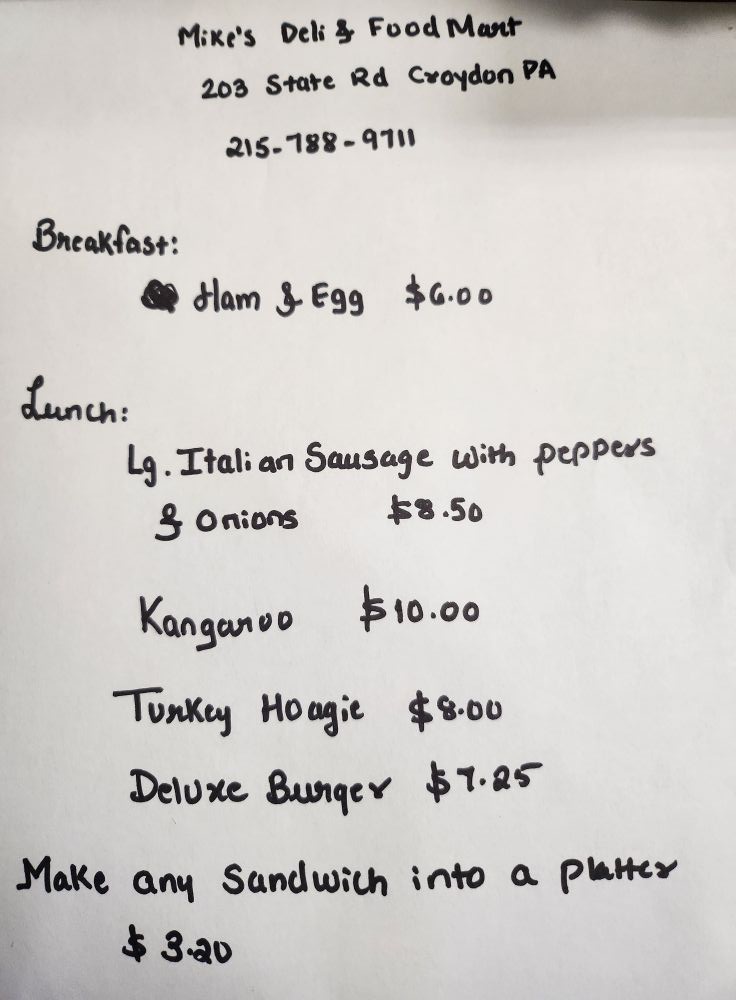 Mike's Deli & Food Mart
203 State Rd Croydon PA
215-788-9711
Breakfast:
Ham & Egg $6.00
Lunch:
Lg. Italian Sausage with peppers
& Onions $8.50
Kangaroo $10.00
Turkey Hoagie $8.00
Deluxe Burger $7.25
Make any Sandwich into a platter
$ 3.20